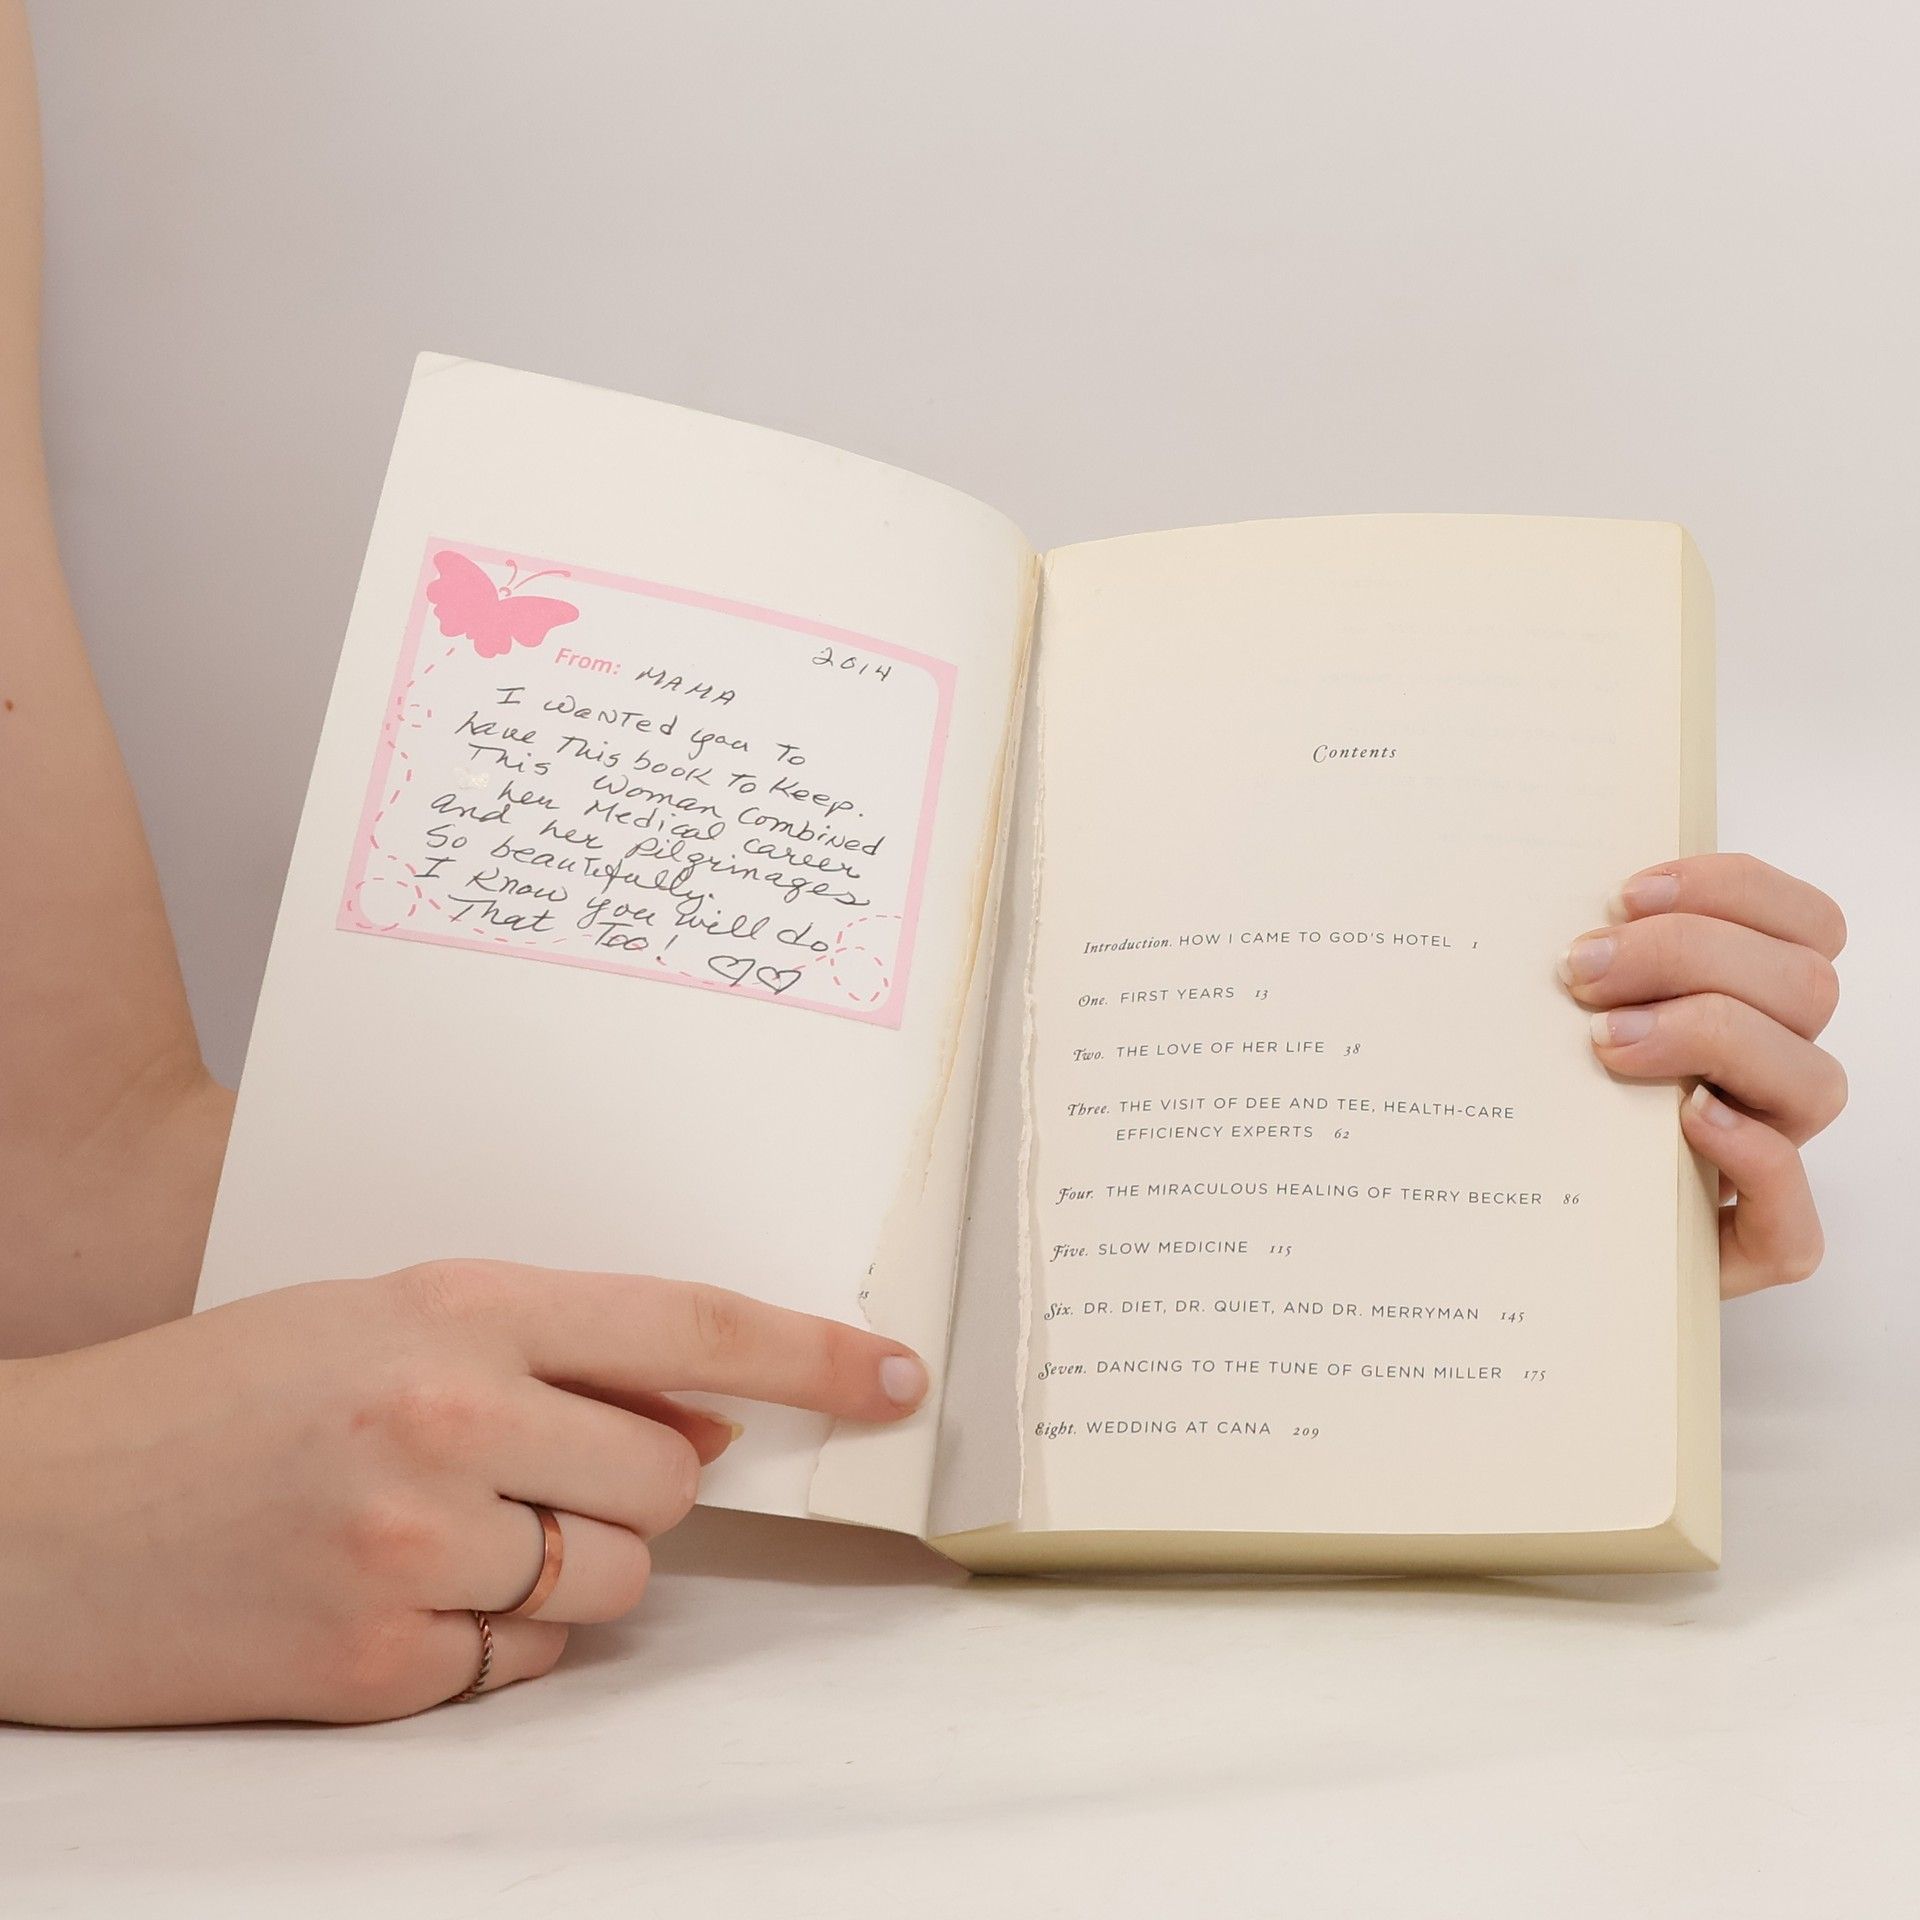 2014
From: MAMA
I wanted you to
have This book to keep.
This Woman Combined
her Medical career
and her Pilgrimages
So beautifully.
I know you will do
That Too! ♡♡
Contents
Introduction. HOW I CAME TO GOD'S HOTEL 1
One. FIRST YEARS 13
Two. THE LOVE OF HER LIFE 38
Three. THE VISIT OF DEE AND TEE, HEALTH-CARE
EFFICIENCY EXPERTS 62
Four. THE MIRACULOUS HEALING OF TERRY BECKER 86
Five. SLOW MEDICINE 115
Six. DR. DIET, DR. QUIET, AND DR. MERRYMAN 145
Seven. DANCING TO THE TUNE OF GLENN MILLER 175
Eight. WEDDING AT CANA 209